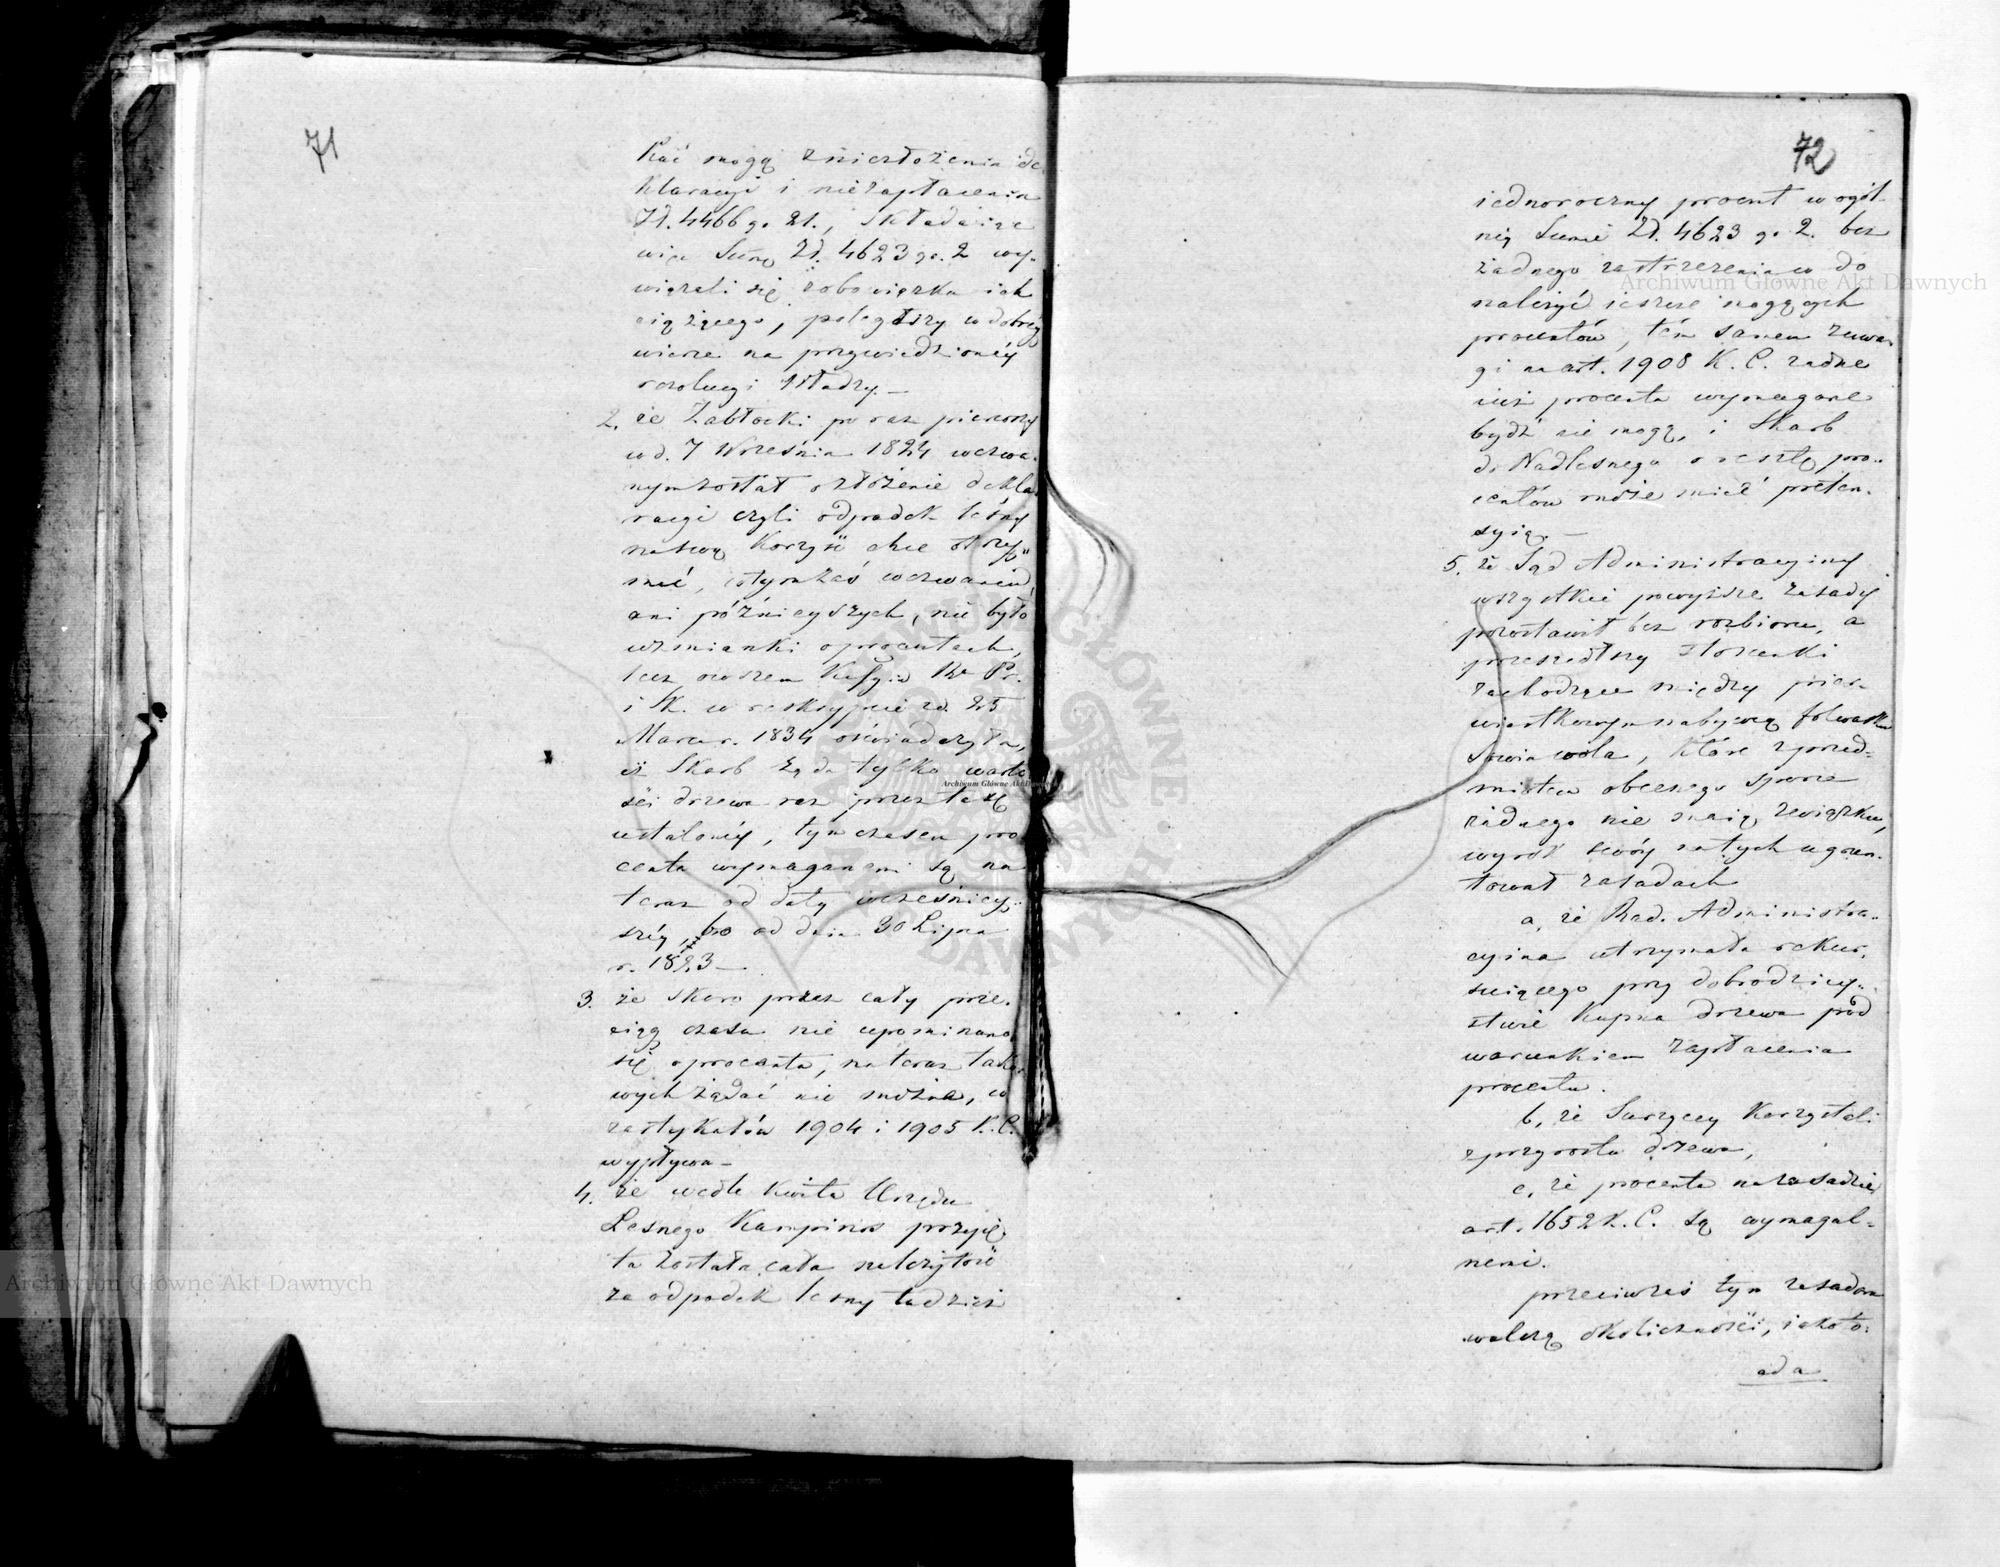 71
kać mogą z niezłożenia de
klaracyi i niezapłacenia
Zł. 4466 gr. 21., składaiąc
więc Sumę Zł. 4623 gr. 2 wy-
wiązali się z obowiązku ich
ciążącego, polegaiąc w dobréj
wierze na przywiedzionéy
rezolucyi Władzy. —
2. że Zabłocki po raz pierwszy
w d. 7 Września 1824 wezwa-
nym został o złożenie dekla-
racyi czyli odpadek leśny
na swą korzyść chce otrzy-
mać, w tymżeś wezwaniu,
ani późnieyszych, nie było
wzmianki o procentach,
lecz owszem Kom̃ya Rz. Pr.
i Sk. w reskrypcie z d. 25
Marca r. 1834 oświadczyła,
iż Skarb żąda tylko warto
ści drzewa raz przez taxę
ustalonéy, tymczasem pro
centa wymaganemi są na
teraz od daty wcześniey-
széy, bo od dnia 30 Lipca
r. 1823 —
3. że skoro przez cały prze-
ciąg czasu nie upominano
się o procenta, na teraz tako-
wych żądać nie można, co
z artykułów 1904 i 1905 K. C.
wypływa —
4. że wedle kwitu Urzędu
Leśnego Kampinos przyję-
ta została cała należytość
za odpadek leśny tudzież
72
iednoroczny procent w ogól-
néy Sumie Zł. 4623 gr. 2. bez
żadnego zastrzeżenia co do
należyć ieszcze mogących
procentów, tém samem z uwa-
gi na art. 1908 K. C. żadne
iuż procenta wymagane
bydź nie mogą, i Skarb
do Nadleśnego o resztę pro-
centów może mieć preten-
syią. —
5. że Sąd Administracyiny
wszystkie powyższe zasady
pozostawił bez rozbioru, a
przeszedłszy stosunki
zachodzące między pier-
wiastkowym nabywcą folwarku
Sowia wola, które z przed-
miotem obecnego sporu
żadnego nie maią związku,
wyrok swóy na tych ugrun-
tował zasadach
a, że Rad. Administra-
cyina utrzymała rekur-
suiącego przy dobrodziey-
stwie kupna drzewa pod
warunkiem zapłacenia
procentu.
b, że Surzyccy korzystali
z przyrostu drzewa,
c, że procenta na zasadzie
art. 1652 K. C. są wymagal-
nemi.
przeciwko tym zasadom
walczą okoliczności, iako to:
ad a
Archiwum Główne Akt Dawnych
Archiwum Główne Akt Dawnych
Archiwum Główne Akt Dawnych